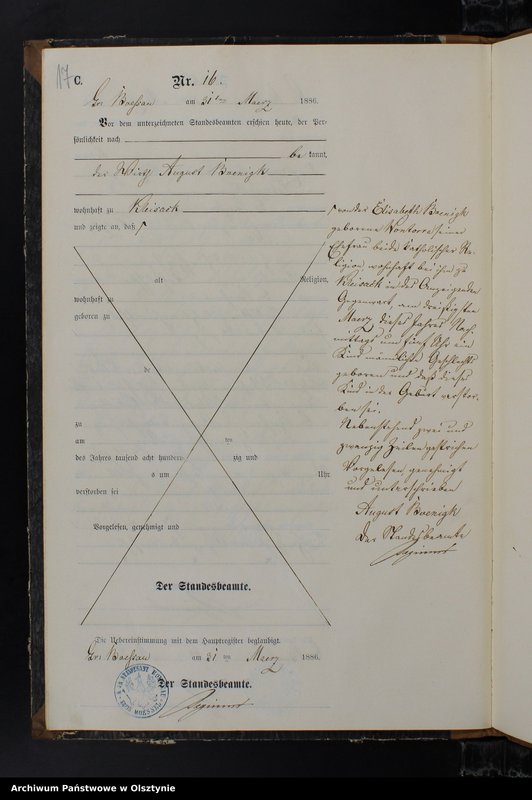 17
C.
Nr. 16.
Gr. Boessau am 31ten Maerz 1886.
Vor dem unterzeichneten Standesbeamten erschien heute, der Per-
sönlichkeit nach
bekannt,
der Wirth August Boenigk
wohnhaft zu Kleisack
und zeigte an, daß
alt Religion,
wohnhaft zu
geboren zu
de
zu
am ten
des Jahres tausend acht hundert zig und
s um Uhr
verstorben sei
Vorgelesen, genehmigt und
Der Standesbeamte.
Die Uebereinstimmung mit dem Hauptregister beglaubigt.
Gr. Boessau am 31 ten Maerz 1886.
Der Standesbeamte.
von der Elisabeth Boenigk
geborene seiner
Ehefrau beide katholischer Re-
ligion, wohnhaft bei ihm zu
Kleisack in des Anzeigenden
Gegenwart am dreißigsten
Maerz dieses Jahres Nach-
mittags um fünf Uhr ein
Kind männlichen Geschlechts
geboren und daß dieses
Kind in der Geburt verstor-
ben sei.
Nebenstehend zwei und
zwanzig Zeilen gestrichen
Vorgelesen, genehmigt
und unterschrieben
August Boenigk
Der Standesbeamte
Archiwum Państwowe w Olsztynie